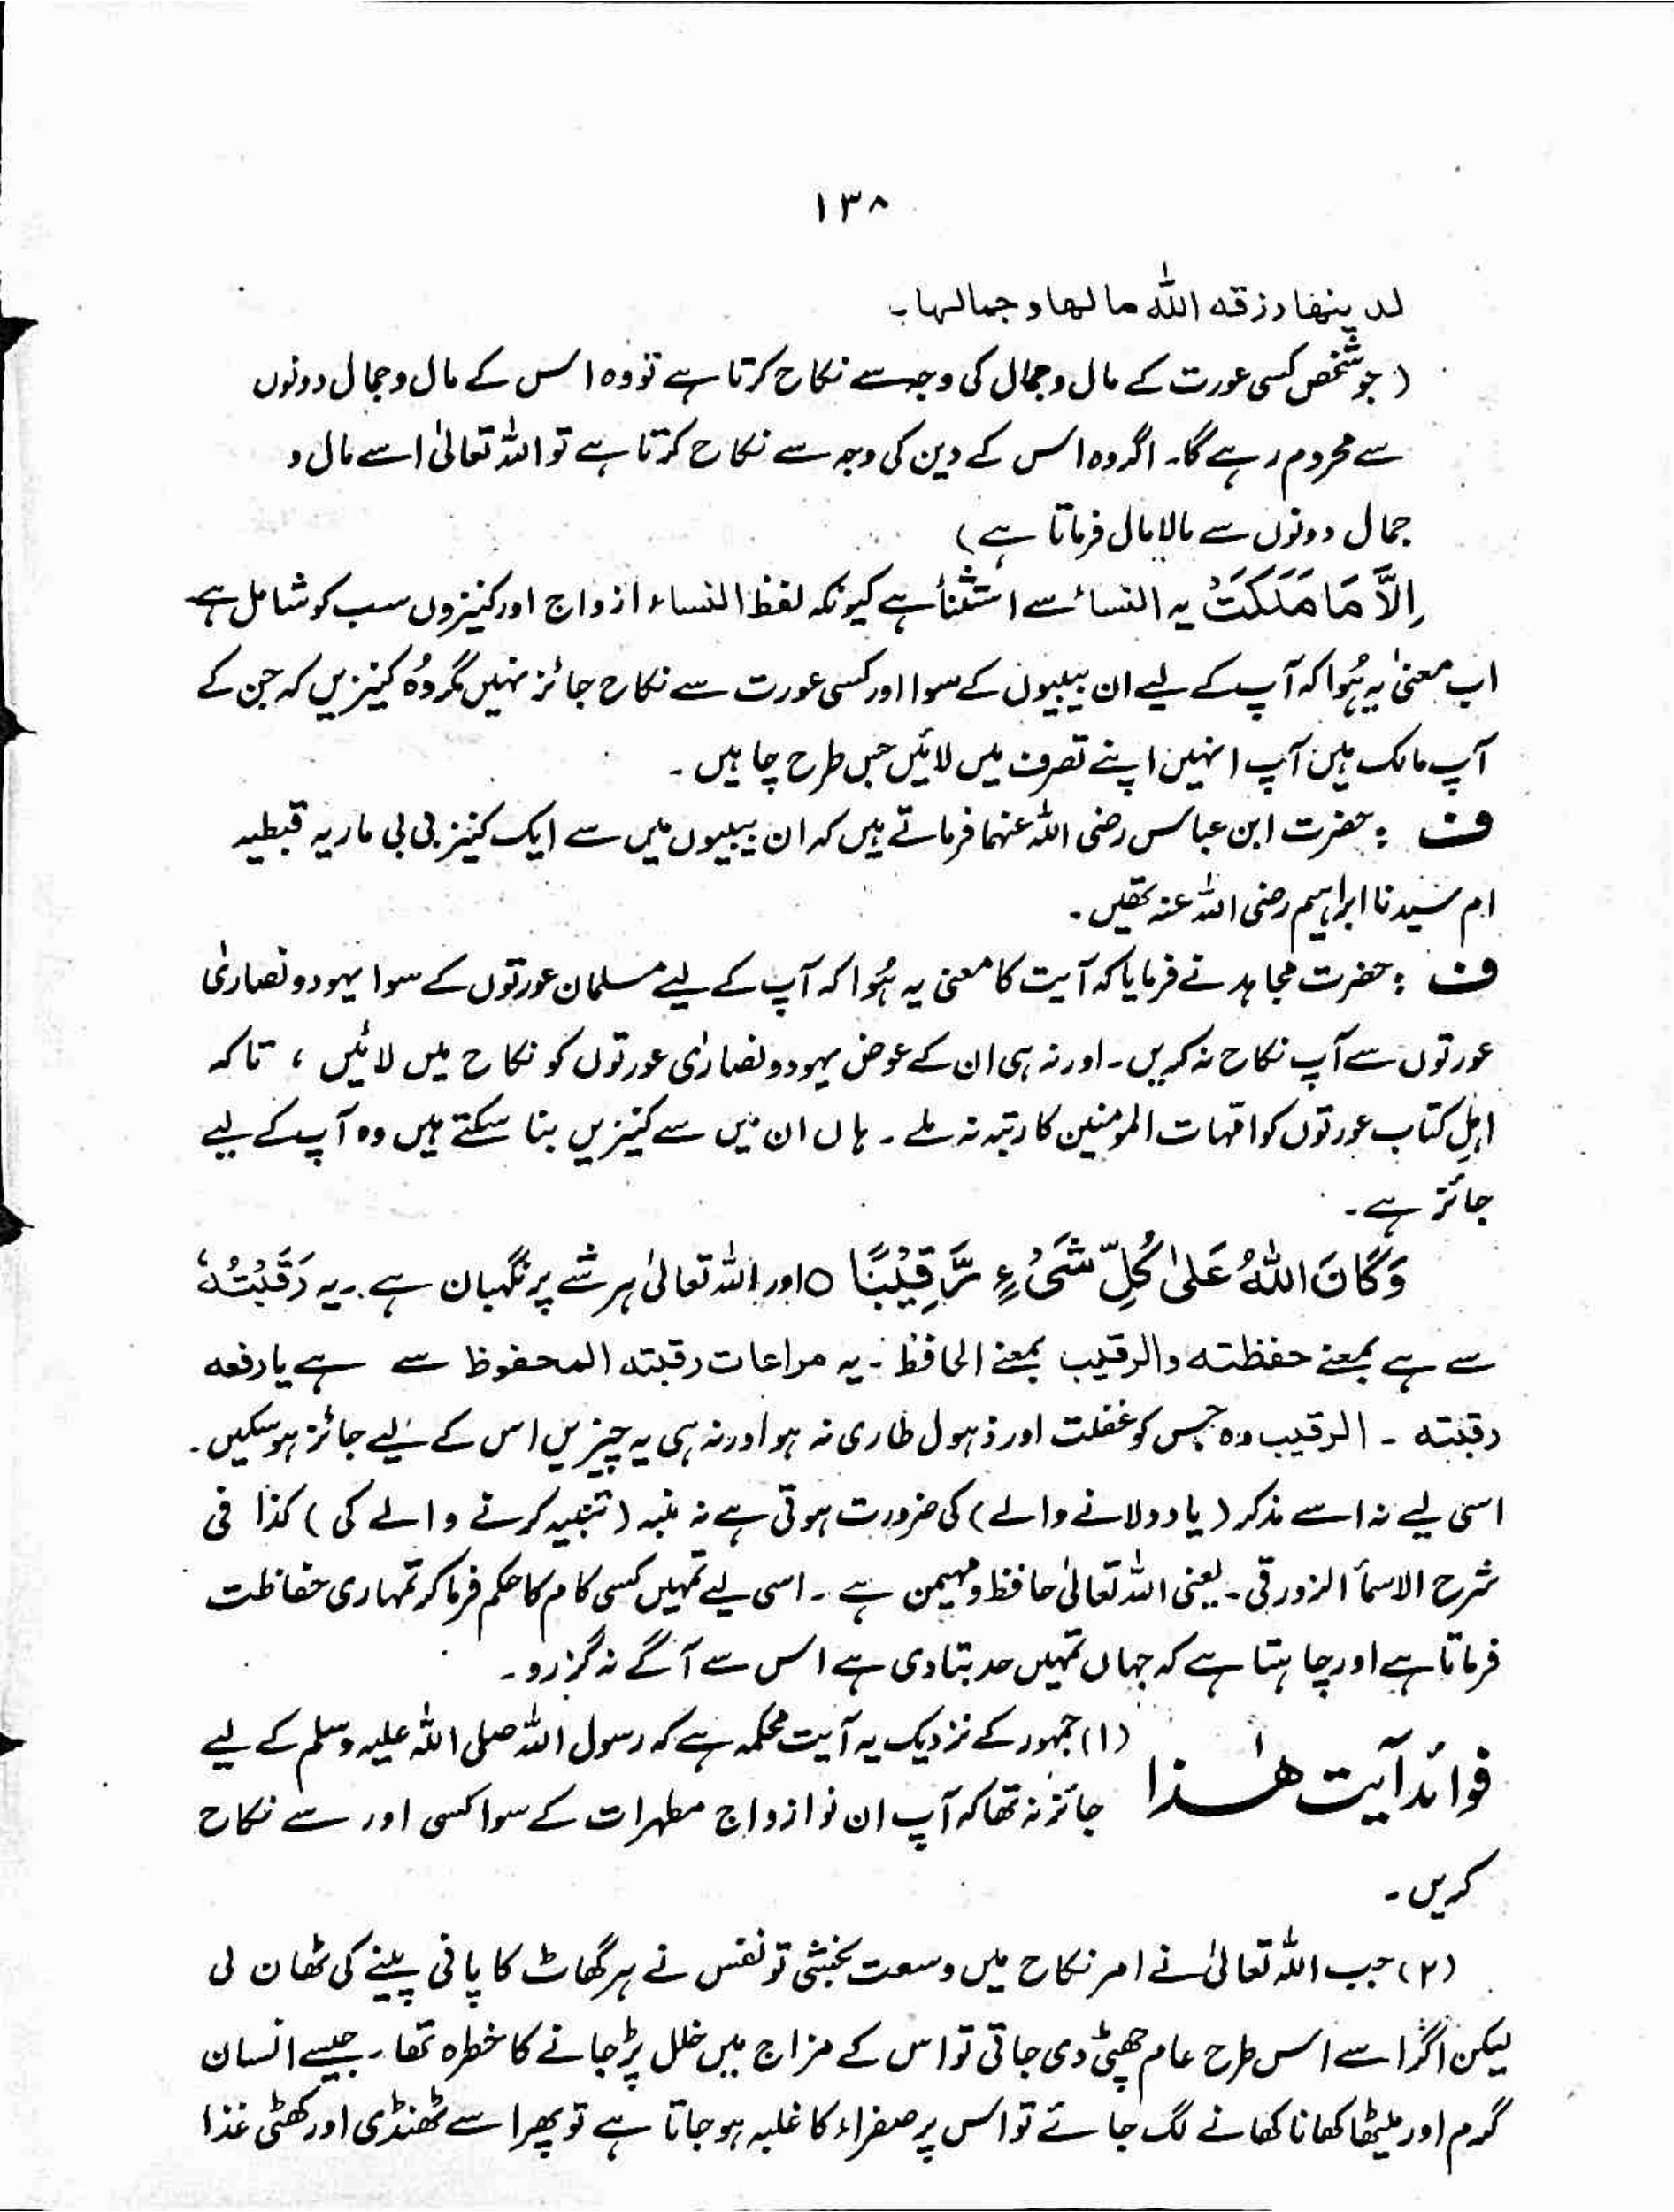 ۱۳۸
لدینھا رزقہ اللہ مالھا وجمالہا۔
(جو شخص کسی عورت کے مال و جمال کی وجہ سے نکاح کرتا ہے تو وہ اس کے مال و جمال دونوں
سے محروم رہے گا۔ اگر وہ اس کے دین کی وجہ سے نکاح کرتا ہے تو اللہ تعالیٰ اسے مال و
جمال دونوں سے مالا مال فرماتا ہے)
اِلَّا مَا مَلَکَتْ یہ النساء سے استثنأ ہے کیونکہ لفظ النساء ازواج اور کنیزوں سب کو شامل ہے
اب معنیٰ یہ ہُوا کہ آپ کے لیے ان بیبیوں کے سوا اور کسی عورت سے نکاح جائز نہیں مگر وُہ کنیزیں کہ جن کے
آپ مالک ہیں آپ انہیں اپنے تصرف میں لائیں جس طرح چاہیں۔
ف : حضرت ابن عباس رضی اللہ عنہما فرماتے ہیں کہ ان بیبیوں میں سے ایک کنیز بی بی ماریہ قبطیہ
ام سیدنا ابراہیم رضی اللہ عنہ تھیں۔
ف : حضرت مجاہد نے فرمایا کہ آیت کا معنی یہ ہُوا کہ آپ کے لیے مسلمان عورتوں کے سوا یہود و نصاریٰ
عورتوں سے آپ نکاح نہ کریں۔ اور نہ ہی ان کے عوض یہود و نصاریٰ عورتوں کو نکاح میں لائیں ، تاکہ
اہلِ کتاب عورتوں کو امّہات المومنین کا رتبہ نہ ملے ۔ ہاں ان میں سے کنیزیں بنا سکتے ہیں وہ آپ کے لیے
جائز ہے۔
وَکَانَ اللّٰہُ عَلیٰ کُلِّ شَیْءٍ رَّقِیْبًا ٥ اور اللہ تعالیٰ ہر شے پر نگہبان ہے۔ یہ رَقَبْتُہٗ
سے ہے بمعنے حفظتہ والرقیب بمعنے الحافظ ۔ یہ مراعات رقبتہ المحفوظ سے ہے یا رفعہ
رقبتہ ۔ الرقیب وہ جس کو غفلت اور ذہول طاری نہ ہو اور نہ ہی یہ چیزیں اس کے لیے جائز ہو سکیں۔
اسی لیے نہ اسے مذکر (یاد دلانے والے) کی ضرورت ہوتی ہے نہ منبہ (تنبیہ کرنے والے کی) کذا فی
شرح الاسمأ الزورقی۔ یعنی اللہ تعالیٰ حافظ و مہیمن ہے۔ اسی لیے تمہیں کسی کام کا حکم فرما کر تمہاری حفاظت
فرماتا ہے اور چاہتا ہے کہ جہاں تمہیں حد بتا دی ہے اس سے آگے نہ گزرو۔
فوائد آیت ھٰذا (۱) جمہور کے نزدیک یہ آیت محکمہ ہے کہ رسول اللہ صلی اللہ علیہ وسلم کے لیے
جائز نہ تھا کہ آپ ان نو ازواج مطہرات کے سوا کسی اور سے نکاح
کریں۔
(۲) جب اللہ تعالیٰ نے امر نکاح میں وسعت بخشی تو نفس نے ہر گھاٹ کا پانی پینے کی ٹھان لی
لیکن اگر اسے اس طرح عام چھٹی دی جاتی تو اس کے مزاج میں خلل پڑ جانے کا خطرہ تھا۔ جیسے انسان
گرم اور میٹھا کھانا کھانے لگ جائے تو اس پر صفراء کا غلبہ ہو جاتا ہے تو پھر اسے ٹھنڈی اور کھٹی غذا